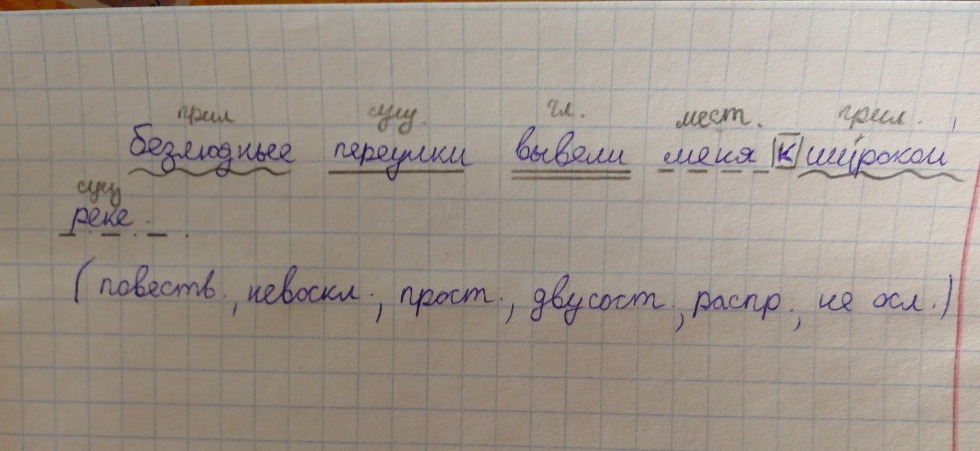 прил сущ. гл. мест. прил.
безлюдные переулки вывели меня к широкой
сущ
реке.
(повеств., невоскл., прост., двусост., распр., не осл.)